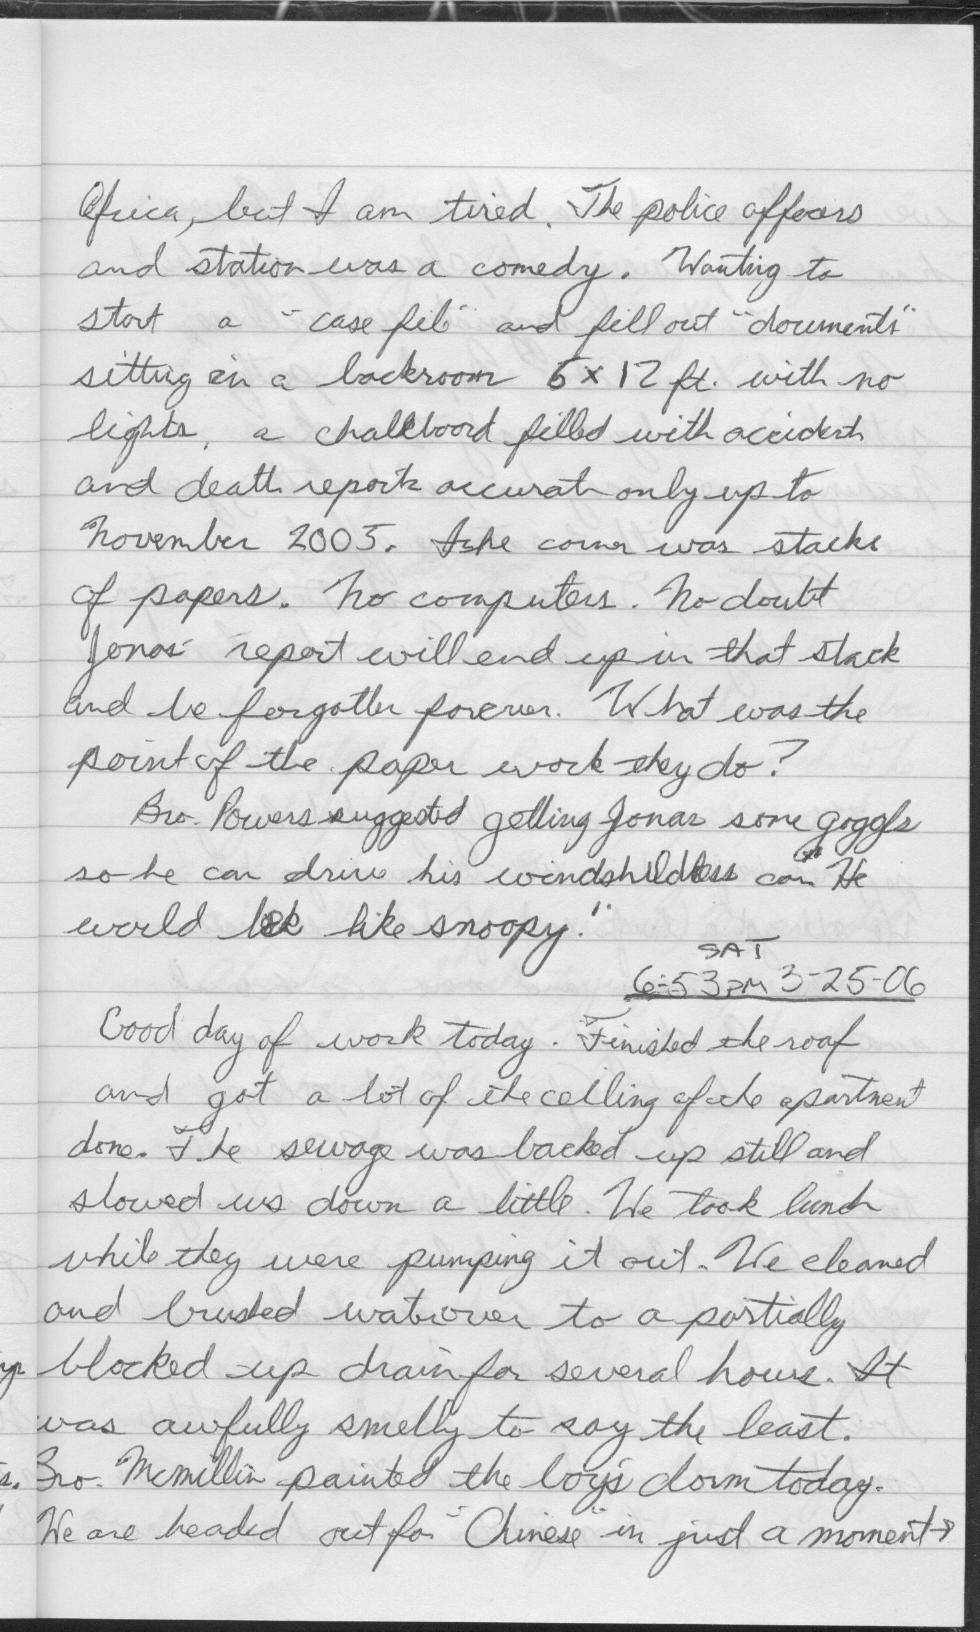 Africa, but I am tired. The police officers
and station was a comedy. Wanting to
start a "case file" and fill out "documents"
sitting in a backroom 6x12 ft. with no
lights, a chalkboard filled with accident
and death reports accurate only up to
November 2005. In the corner was stacks
of papers. No computers. No doubt
Jonas' report will end up in that stack
and be forgotten forever. What was the
point of the paper work they do?
Bro. Powers suggested getting Jonas some goggles
so he can drive his windshieldless car. "He
would look like snoopy."
SAT
6:53PM 3-25-06
Good day of work today. Finished the roof
and got a lot of the ceiling of the apartment
done. The sewage was backed up still and
slowed us down a little. We took lunch
while they were pumping it out. We cleaned
and brushed water over to a partially
blocked up drain for several hours. It
was awfully smelly to say the least.
Bro. McMillin painted the boy's dorm today.
We are headed out for "Chinese" in just a moment→